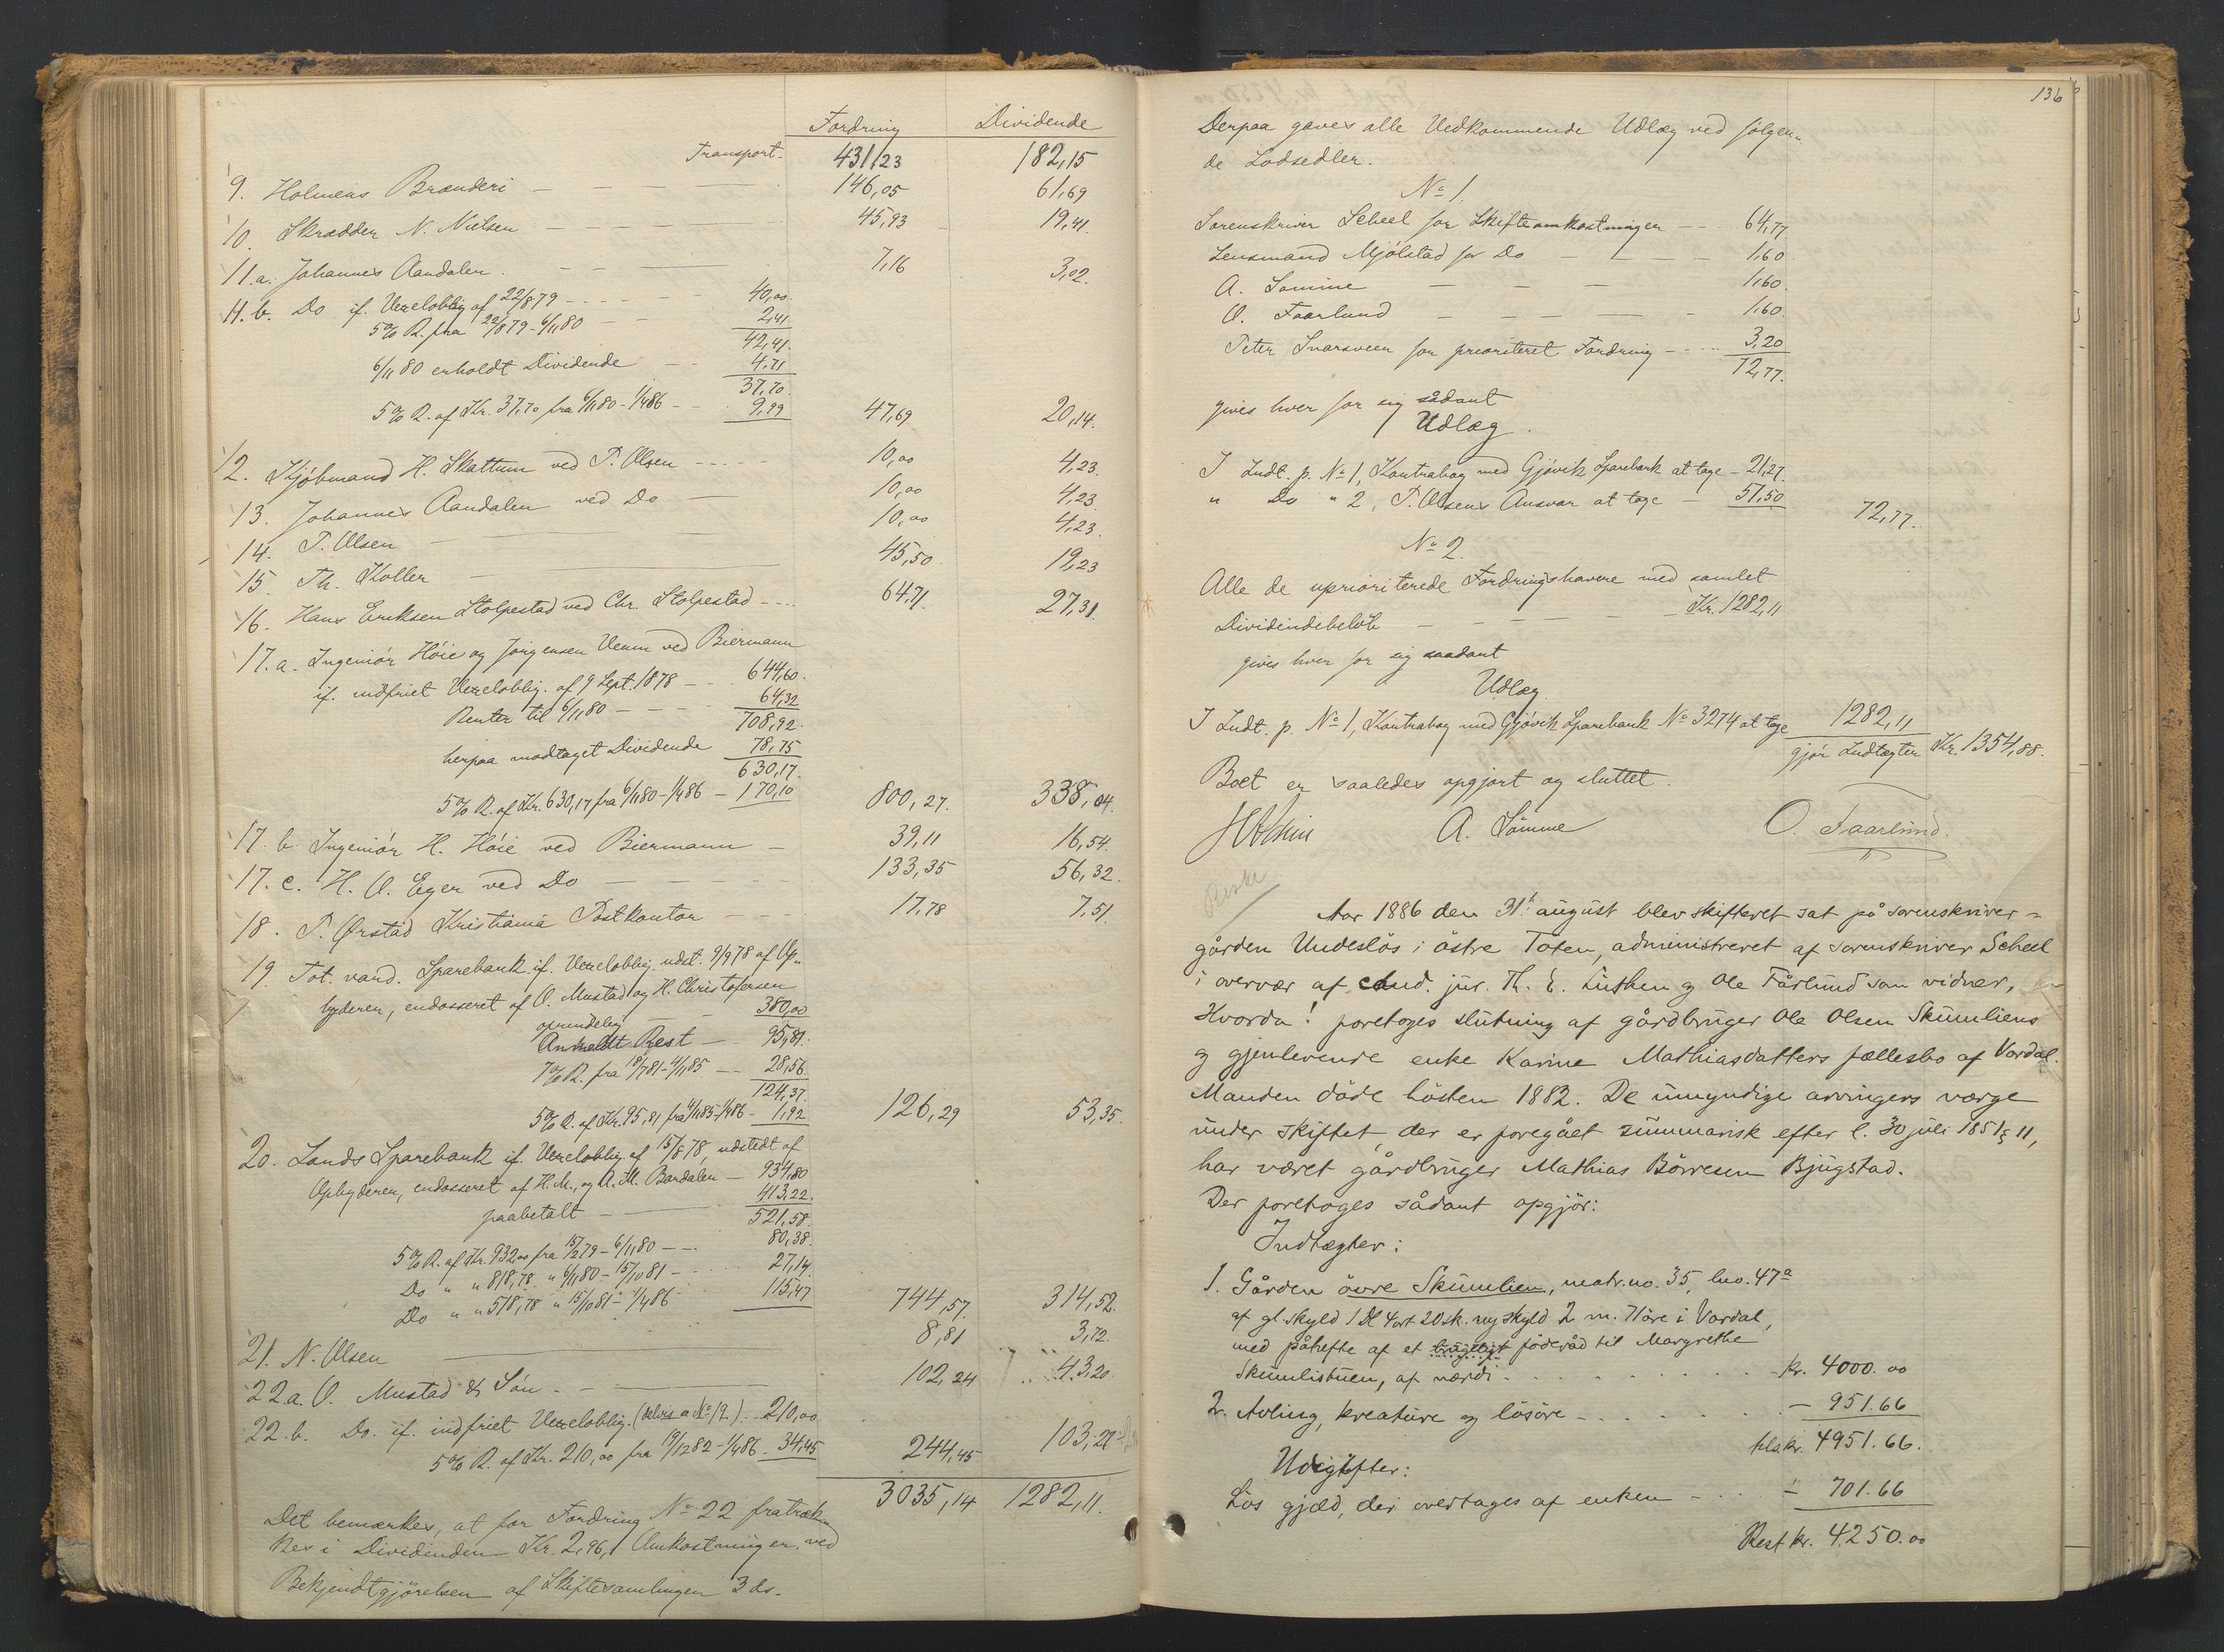 Fordring Dividende
Transport 431,23 182,15
9. Holmens Brænderi — — — 146,05 61,69
10. Skrædder N. Nielsen — — — 45,93 19,41.
11.a. Johannes Aandalen. — — 7,16 3,02.
11.b. Do if. Vexelobblig af 22/8 79 — — 40,00.
5% R. fra 22/8 79 - 6/11 80 — 2,41
42,41.
6/11 80 erholdt Dividende — 4,71
37,70.
5% R. af Kr. 37,70 fra 6/11 80 - 1/4 86 — 9,99 47,69 20,14.
12. Kjöbmand H. Skattum ved P. Olsen — 10,00 4,23.
13. Johannes Aandalen ved Do — 10,00 4,23.
14. P. Olsen — 10,00 4,23.
15. Th. Koller — 45,50. 19,23
16. Hans Eriksen Stolpestad ved Chr. Stolpestad — 64,71. 27,31.
17.a. Ingeniör Höie og Jörgensen Venn ved Biermann
if. indfriet Vexelobblig. af 9 Sept. 1878 — 644,60.
Renter til 6/11 80 — 64,32
708,92.
herpaa modtaget Dividende 78,75
630,17.
5% R. af Kr. 630,17 fra 6/11 80 - 1/4 86 — 170,10 800,27. 338,04.
17.b Ingeniör H. Höie ved Biermann — 39,11 16,54.
17.c. H. O. Eger ved Do — 133,35 56,32.
18. P. Ørstad Kristiania Postkontor — 17,78 7,51.
19. Tot. vard. Sparebank if. Vexelobblig. udst. 9/9 78 af Op-
byderen, endosseret af O. Mustad og H. Christofersen
oprindelig — 380,00
Anmeldt Rest — 95,81.
7% R. fra 18/7 81 - 4/11 85 — 28,56
124,37.
5% R. af Kr. 95,81 fra 4/11 85 - 1/4 86 — 1,92 126,29 53,35.
20. Lands Sparebank if. Vexelobblig af 15/8 78, udstedt af
Opbyderen, endosseret af H. M., og A. M. Bardalen — 934,80
paabetalt — 413,22.
521,58.
5% R. af Kr. 932,00 fra 15/2 79 - 6/11 80 — 80,38.
Do " " 818,78 " 6/11 80 - 15/10 81 — 27,14.
Do " " 518,78 " 15/10 81 - 1/4 86 115,47 744,57. 314,52.
21. N. Olsen — 8,81 3,72.
22.a. O. Mustad & Sön. — 102,24 43,20.
22.b. Do. if. indfriet Vexelobblig. (delvis a No 19.) 210,00
5% R. af Kr. 210,00 fra 19/12 82 - 1/4 86 34,45 244,45 103,27
3035,14 1282,11.
Det bemærkes, at for Fordring No 22 fratræk-
kes i Dividenden Kr. 2,96, Omkostninger ved
Bekjendtgjörelsen af Skiftesamlingen 3 ds.
136
Derpaa gaves alle Vedkommende Udlæg ved fölgen-
de Lodsedler.
No 1.
Sorenskriver Scheel for Skifteomkostninger — 64,77
Lensmand Mjölstad for Do — 1,60.
A. Sömme — 1,60.
O. Faarlund — 1,60.
Peter Svarsveen for prioriteret Fordring — 3,20
72,77.
gives hver for sig sådant
Udlæg.
I Indt. p. No 1, Kontrabog med Gjövik Sparebank at tage — 21,27.
" Do " 2, P. Olsens Ansvar at tage — 51,50 72,77.
No 2.
Alle de uprioriterede Fordringshavere med samlet
Dividendebelöb — Kr. 1282,11
gives hver for sig saadant
Udlæg
I Indt. p. No 1, Kontrabog med Gjövik Sparebank No 3274 at tage 1282,11
gjör Indtægten Kr. 1354,88.
Boet er saaledes opgjort og sluttet.
A. Sömme O. Faarlund.
Aar 1886 den 31te august blev skifteret sat på sorenskriver-
gården Undeslös i östre Toten, administreret af sorenskriver Scheel
i overvær af cand. jur. Th. E. Luthen og Ole Fårlund som vidner,
Hvorda! foretoges slutning af gårdbruger Ole Olsen Skumliens
og gjenlevende enke Karine Mathiasdatters fællesbo af Vardal.
Manden döde hösten 1882. De umyndige arvingers værge
under skiftet, der er foregået summarisk efter l. 30 juli 1851 § 11,
har været gårdbruger Mathias Börresen Bjugstad.
Der foretoges sådant opgjör:
Indtægter:
1. Gården övre Skumlien, matr.no. 35, lno. 47a
af gl. skyld 1 Dl 4 ort 20 sk. ny skyld 2 m. 71 öre i Vardal,
med påhefte af et brugeligt föderåd til Margrethe
Skumlistuen, af værdi — kr. 4000.00
2. Avling, kreature og lösöre — 951.66
tils. kr. 4951.66.
Udgifter:
Lös gjæld, der overtages af enken — 701.66
Rest kr. 4250.00